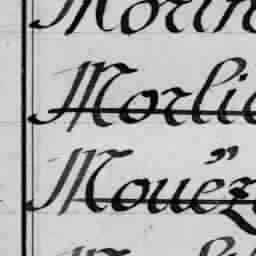 Morin
Morlie
Mouëz